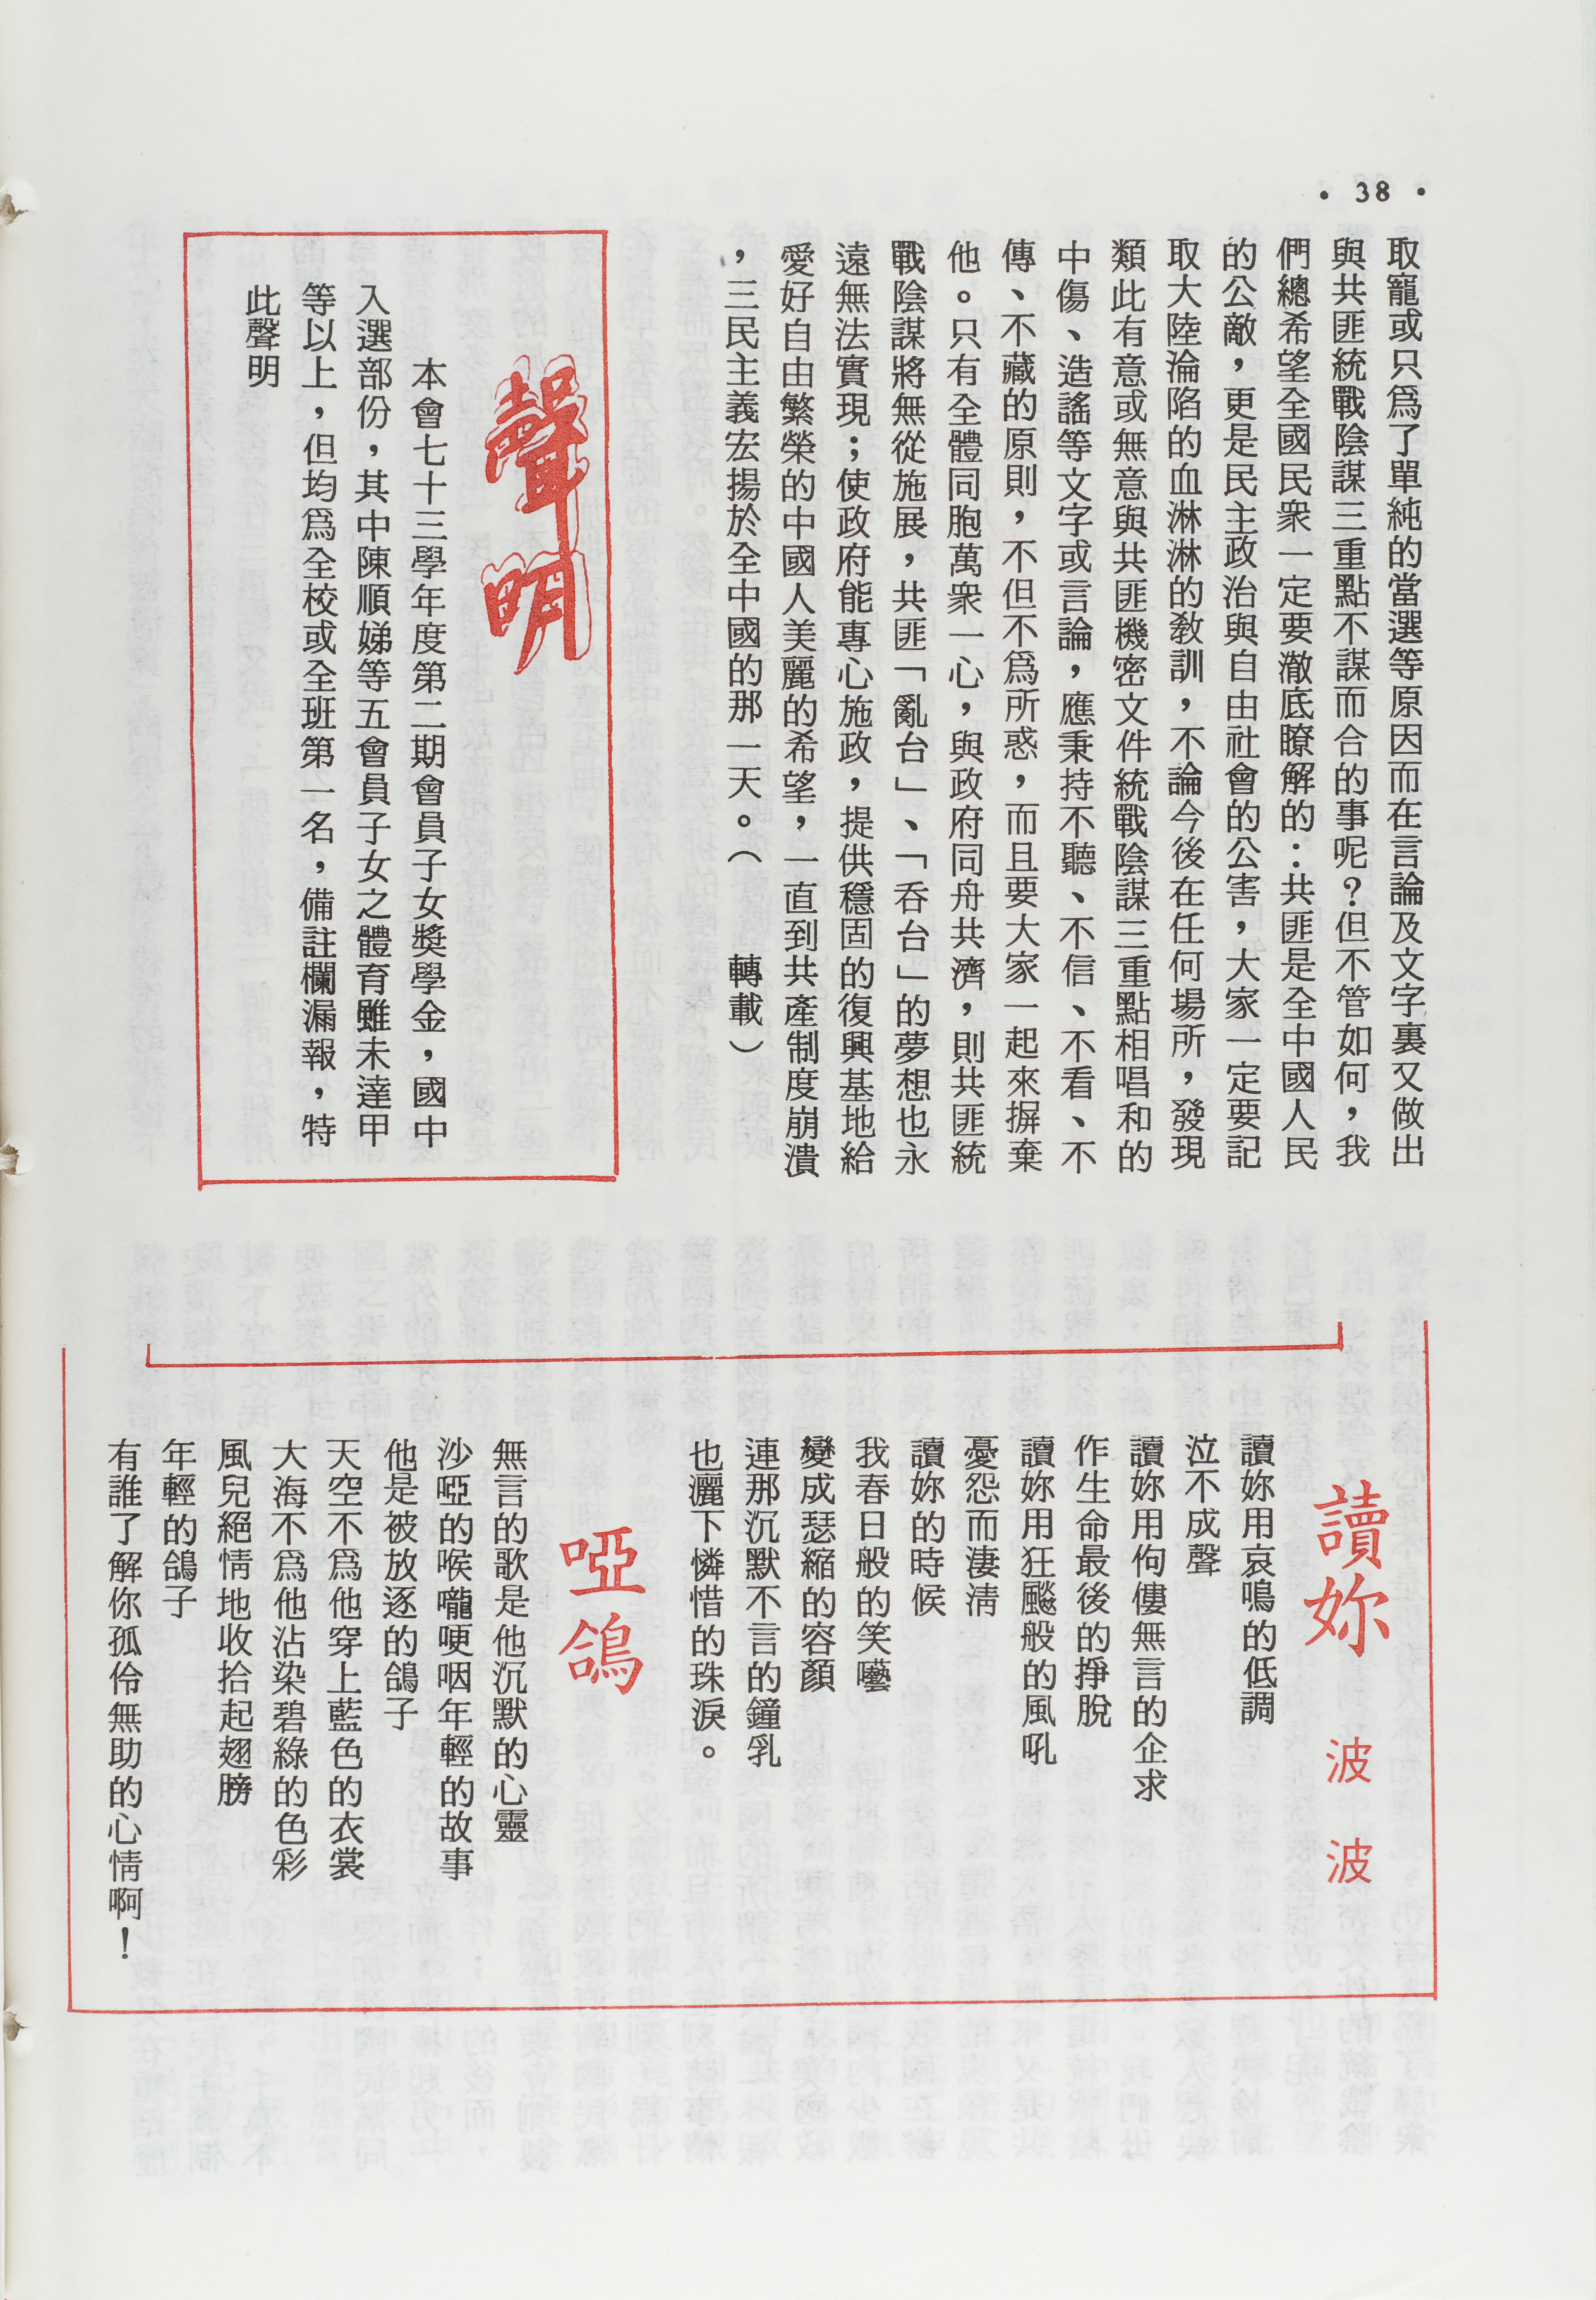 • 38 •
取寵或只爲了單純的當選等原因而在言論及文字裏又做出
與共匪統戰陰謀三重點不謀而合的事呢？但不管如何，我
們總希望全國民衆一定要澈底瞭解的：共匪是全中國人民
的公敵，更是民主政治與自由社會的公害，大家一定要記
取大陸淪陷的血淋淋的教訓，不論今後在任何場所，發現
類此有意或無意與共匪機密文件統戰陰謀三重點相唱和的
中傷、造謠等文字或言論，應秉持不聽、不信、不看、不
傳、不藏的原則，不但不爲所惑，而且要大家一起來摒棄
他。只有全體同胞萬衆一心，與政府同舟共濟，則共匪統
戰陰謀將無從施展，共匪「亂台」、「呑台」的夢想也永
遠無法實現；使政府能專心施政，提供穩固的復興基地給
愛好自由繁榮的中國人美麗的希望，一直到共產制度崩潰
，三民主義宏揚於全中國的那一天。（　　轉載）
聲明
本會七十三學年度第二期會員子女獎學金，國中
入選部份，其中陳順娣等五會員子女之體育雖未達甲
等以上，但均爲全校或全班第一名，備註欄漏報，特
此聲明
讀妳　波　波
讀妳用哀鳴的低調
泣不成聲
讀妳用佝僂無言的企求
作生命最後的掙脫
讀妳用狂飈般的風吼
憂怨而淒淸
讀妳的時候
我春日般的笑囈
變成瑟縮的容顏
連那沉默不言的鐘乳
也灑下憐惜的珠淚。
啞鴿
無言的歌是他沉默的心靈
沙啞的喉嚨哽咽年輕的故事
他是被放逐的鴿子
天空不爲他穿上藍色的衣裳
大海不爲他沾染碧綠的色彩
風兒絕情地收拾起翅膀
年輕的鴿子
有誰了解你孤伶無助的心情啊！